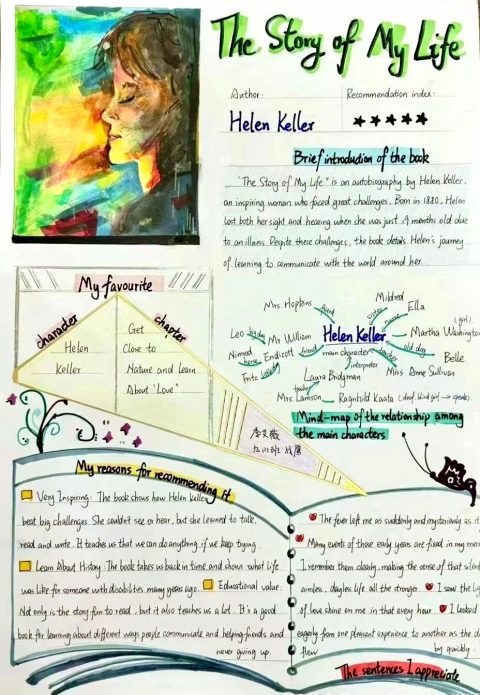 The Story of My Life
Author:
Recommendation index:
Helen Keller
★★★★★
Brief introduction of the book
"The Story of My Life" is an autobiography by Helen Keller,
an inspiring woman who faced great challenges. Born in 1880, Helen
lost both her sight and hearing when she was just 19 months old due
to an illness. Despite these challenges, the book details Helen's journey
of learning to communicate with the world around her.
My favourite
character
chapter
Helen
Keller
Get
Close to
Nature and Learn
About 'Love'
Mrs. Hopkins
friend
sister
Mildred
nurse
Ella
Leo
big dog
Mr. William
Endicott
friend
Helen Keller
main character
Martha Washington
(girl)
Nimrod
horse
old dog
Belle
Fritz
teacher
Miss Anne Sullivan
interpreter
Laura Bridgman
teacher
Mrs Lamson
Ragnhild Kaata (deaf, blind girl → speak)
Mind-map of the relationship among
the main characters
My reasons for recommending it
Very Inspiring: The book shows how Helen Keller
beat big challenges. She couldn't see or hear, but she learned to talk,
read and write. It teaches us that we can do anything if we keep trying.
Learn About History: The book takes us back in time and shows what life
was like for someone with disabilities many years ago. Educational value:
Not only is the story fun to read, but it also teaches us a lot. It's a good
book for learning about different ways people communicate and helping friends, and
never giving up.
The fever left me as suddenly and mysteriously as it
Many events of those early years are fixed in my mem
I remember them clearly, making the sense of that silent
aimless, dayless life all the stronger. I saw the lig
of love shine on me in that very hour. I looked
eagerly from one pleasant experience to another as the d
flew by quickly.
The sentences I appreciate